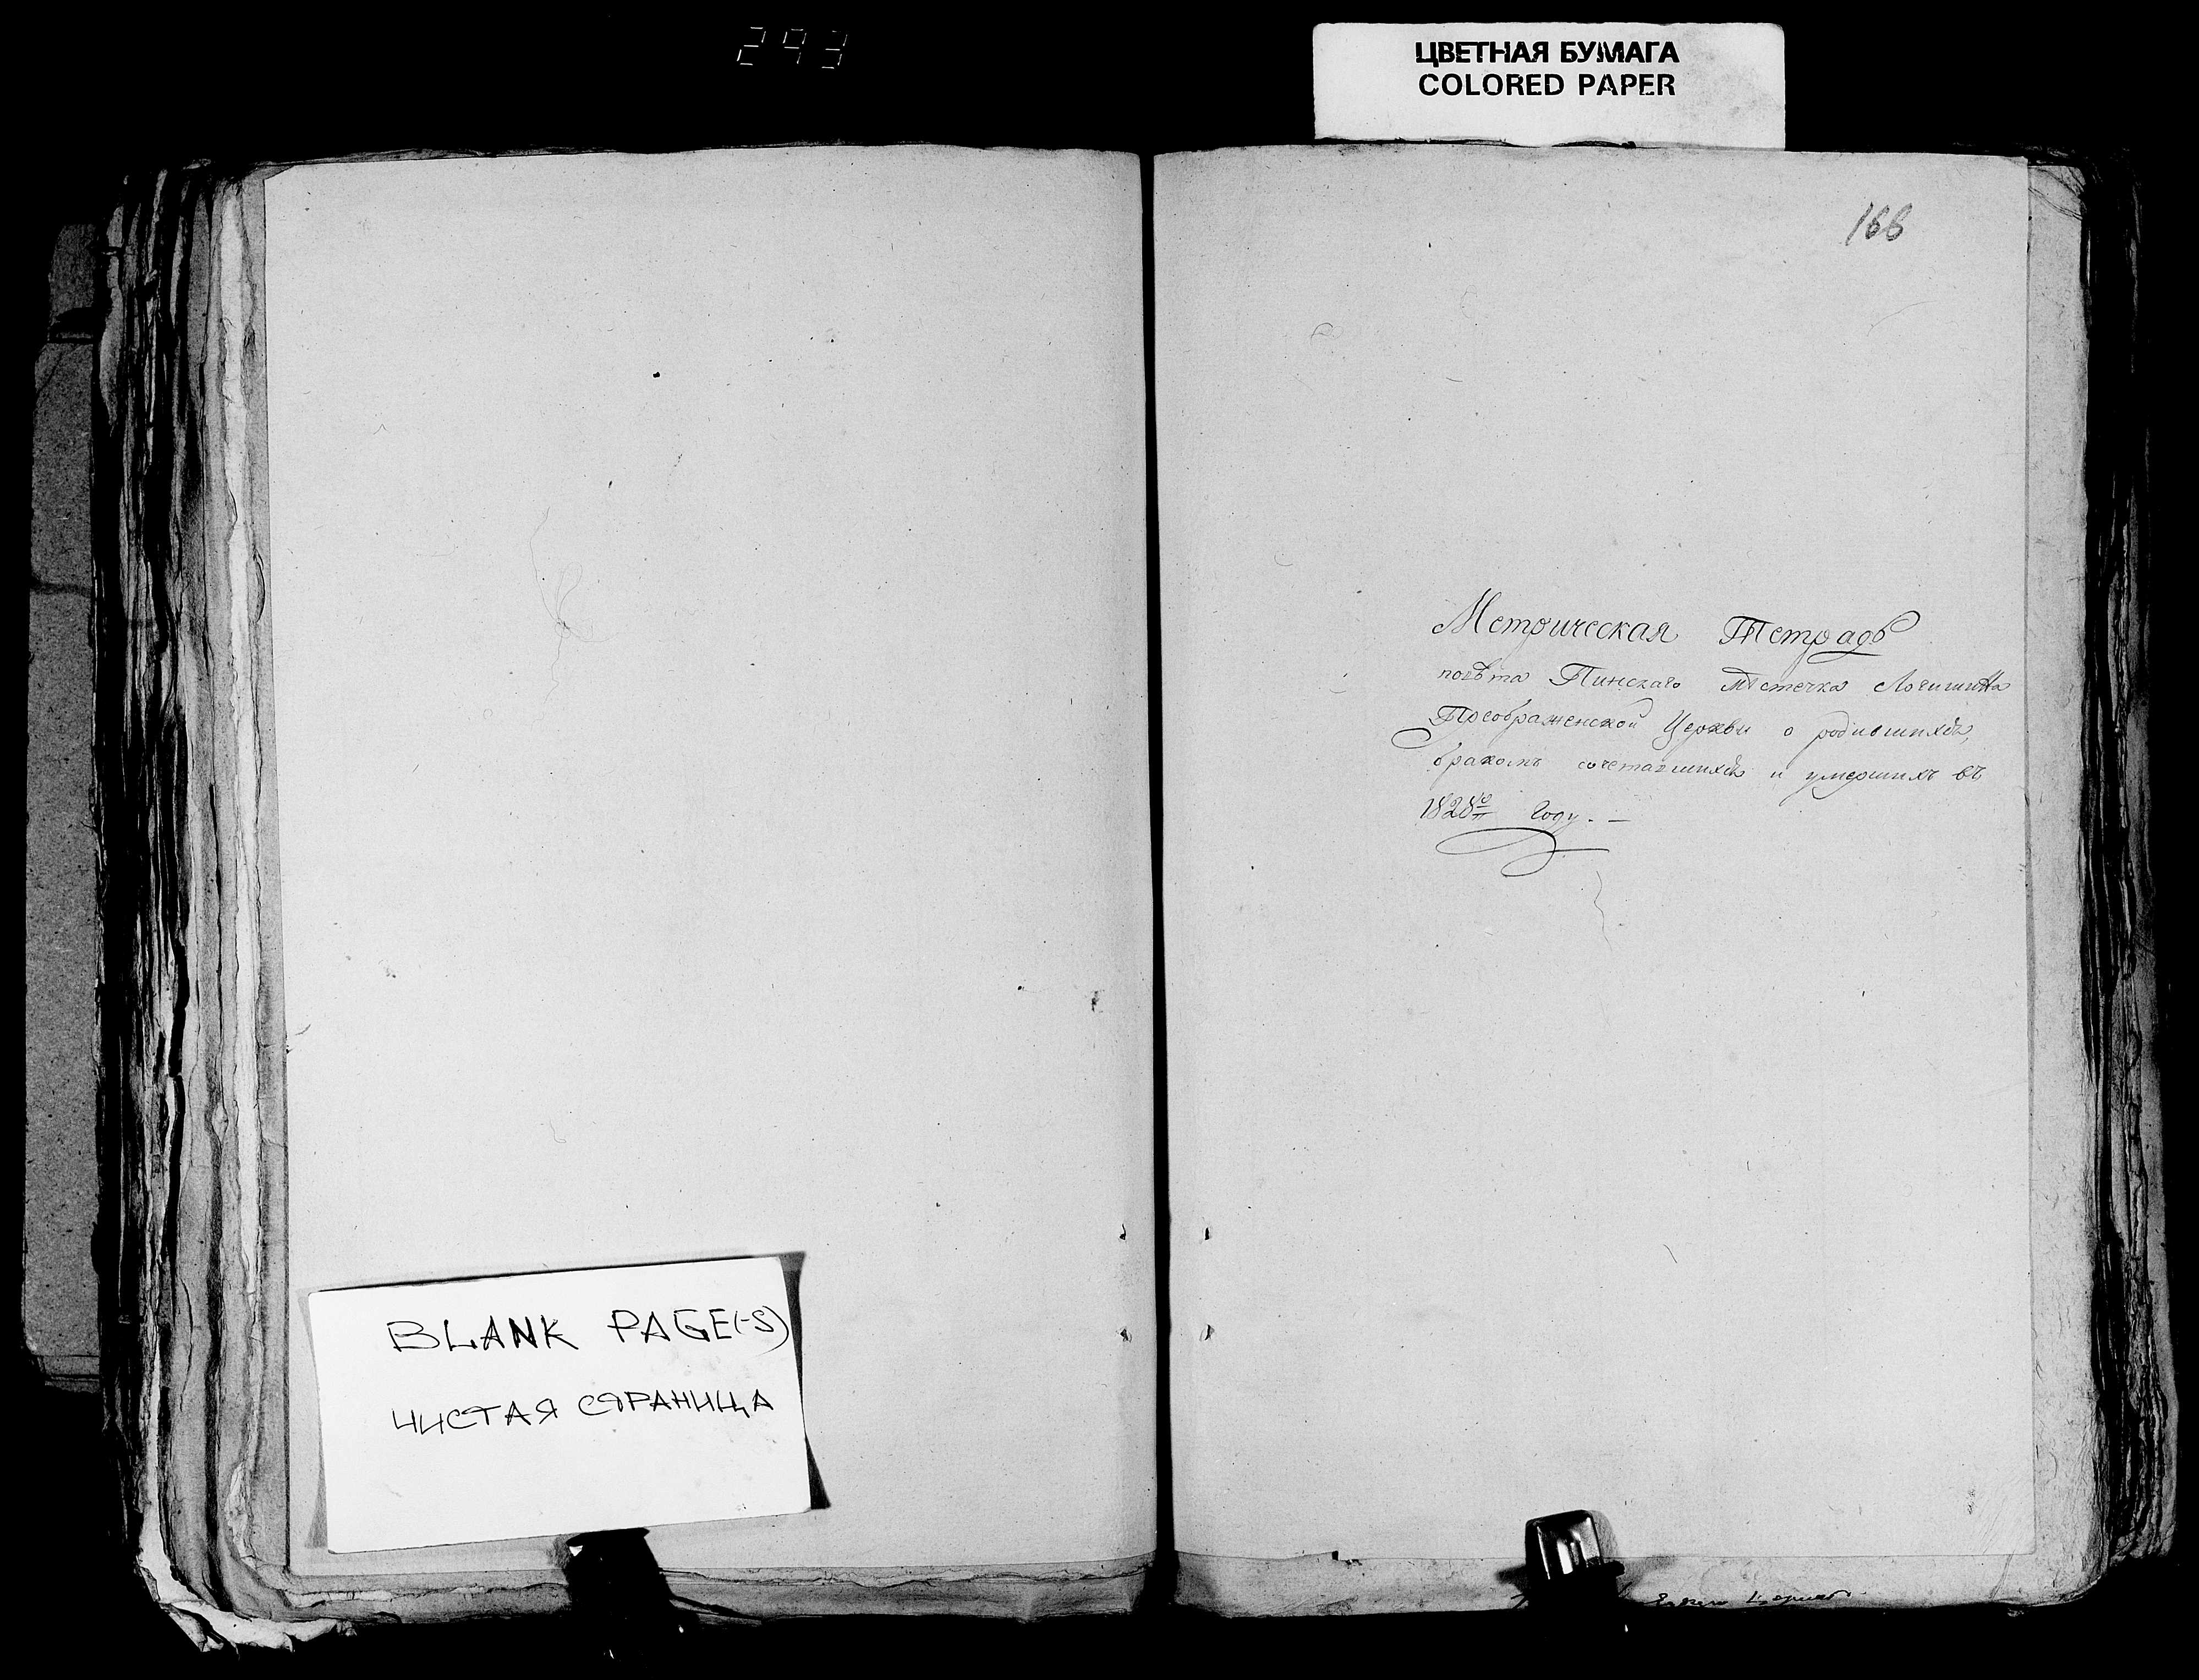 293
ЦВЕТНАЯ БУМАГА
COLORED PAPER
166
Метрическая Тетрадь
повѣта Пинскаго Мѣстечка Логишина
Преображенской Церкви о родившихся,
бракомъ сочетавшихся и умершихъ въ
1828го году. —
BLANK PAGE(-S)
ЧИСТАЯ СТРАНИЦА